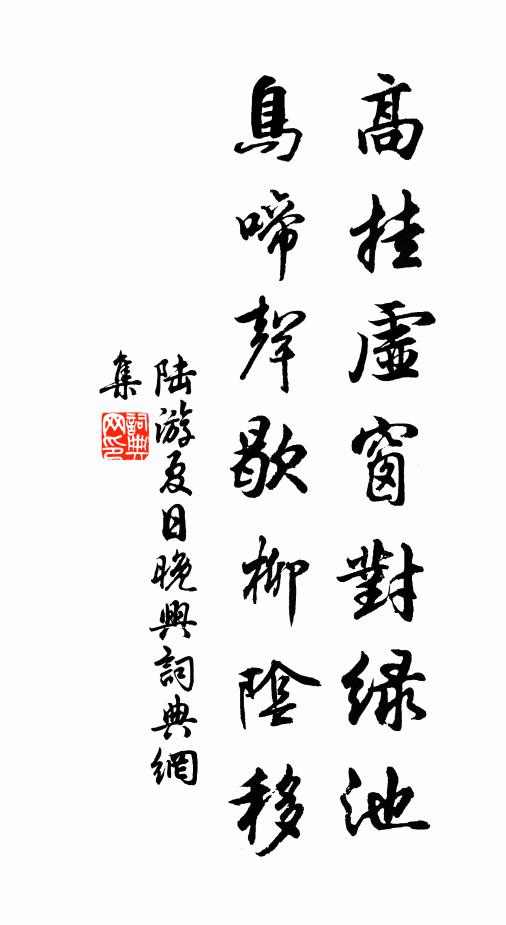 高挂虛窗對綠池
鳥啼聲歇柳陰移
陸游夏日晚興詞典網
集
詞典
网印